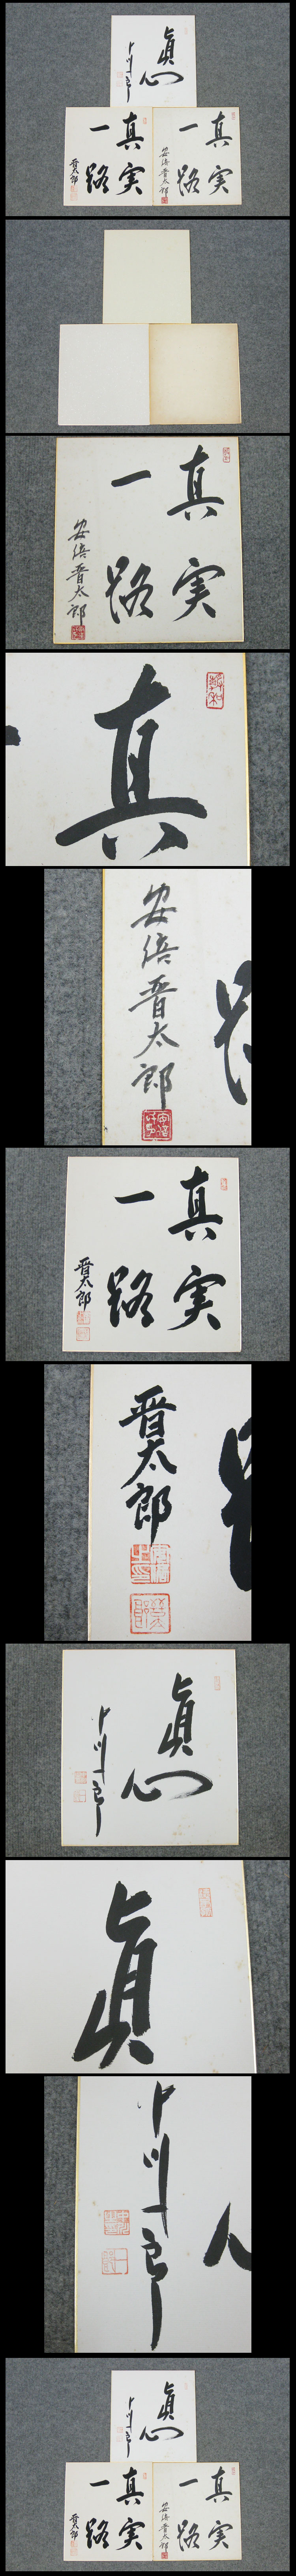 貞心
中川一郎
真実
一路
晋太郎
真実
一路
安倍晋太郎
真実
一路
安倍晋太郎
真
安倍晋太郎
真実
一路
晋太郎
晋太郎
貞心
中川一郎
貞
中川一郎
貞心
中川一郎
真実
一路
晋太郎
真実
一路
安倍晋太郎